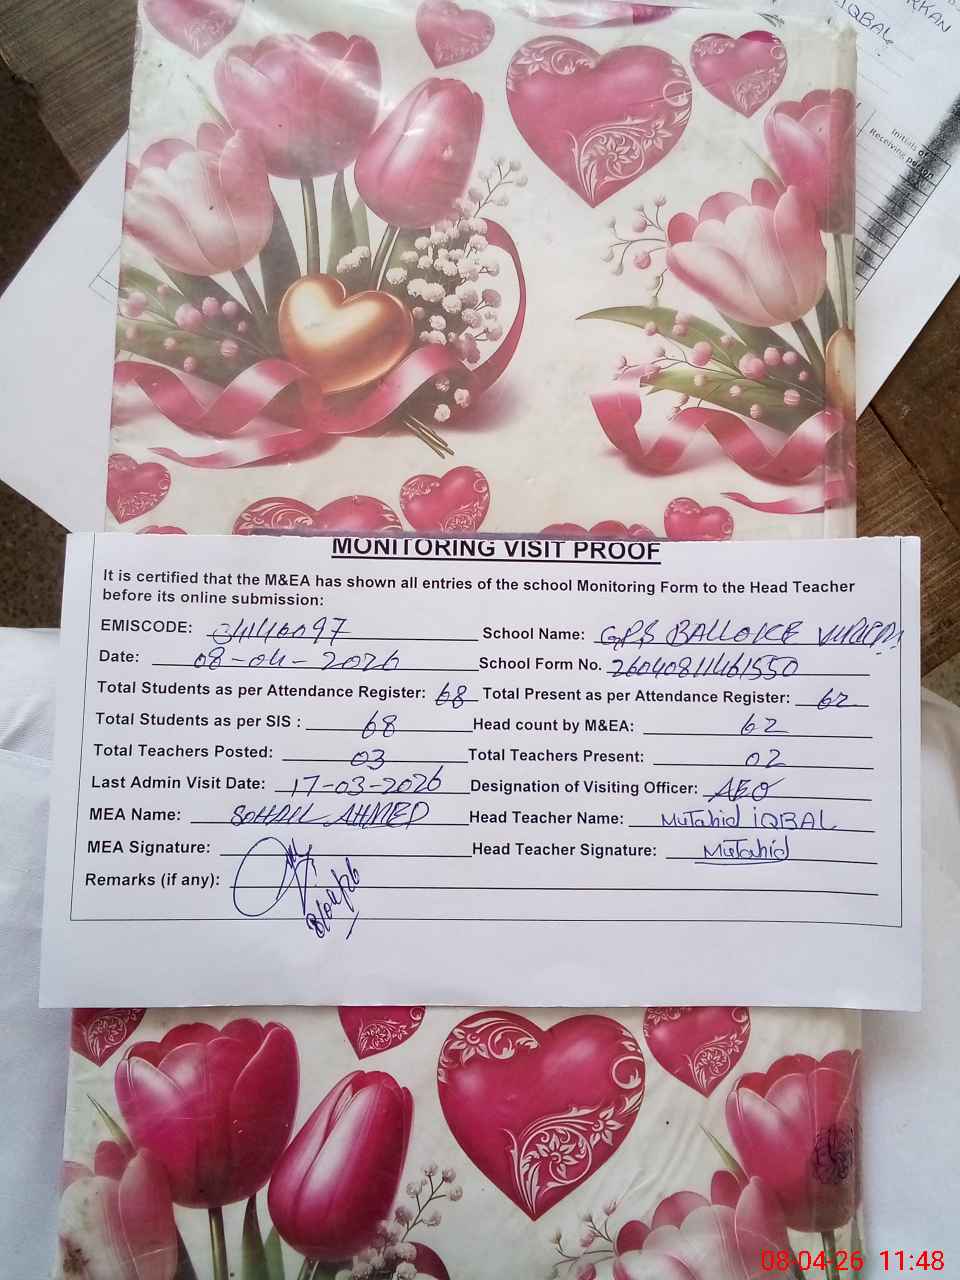 RKAN
IQBAL
Initials of
Receiving person
MONITORING VISIT PROOF
It is certified that the M&EA has shown all entries of the school Monitoring Form to the Head Teacher
before its online submission:
EMISCODE: 34140097 School Name: GPS BALLOKE
Date: 08-04-2026 School Form No. 26040811461550
Total Students as per Attendance Register: 68 Total Present as per Attendance Register: 62
Total Students as per SIS : 68 Head count by M&EA: 62
Total Teachers Posted: 03 Total Teachers Present: 02
Last Admin Visit Date: 17-03-2026 Designation of Visiting Officer: AEO
MEA Name: SOHAIL AHMED Head Teacher Name: Mutahid IQBAL
MEA Signature: Head Teacher Signature: Mutahid
Remarks (if any): 8/04/26
08-04-26 11:48